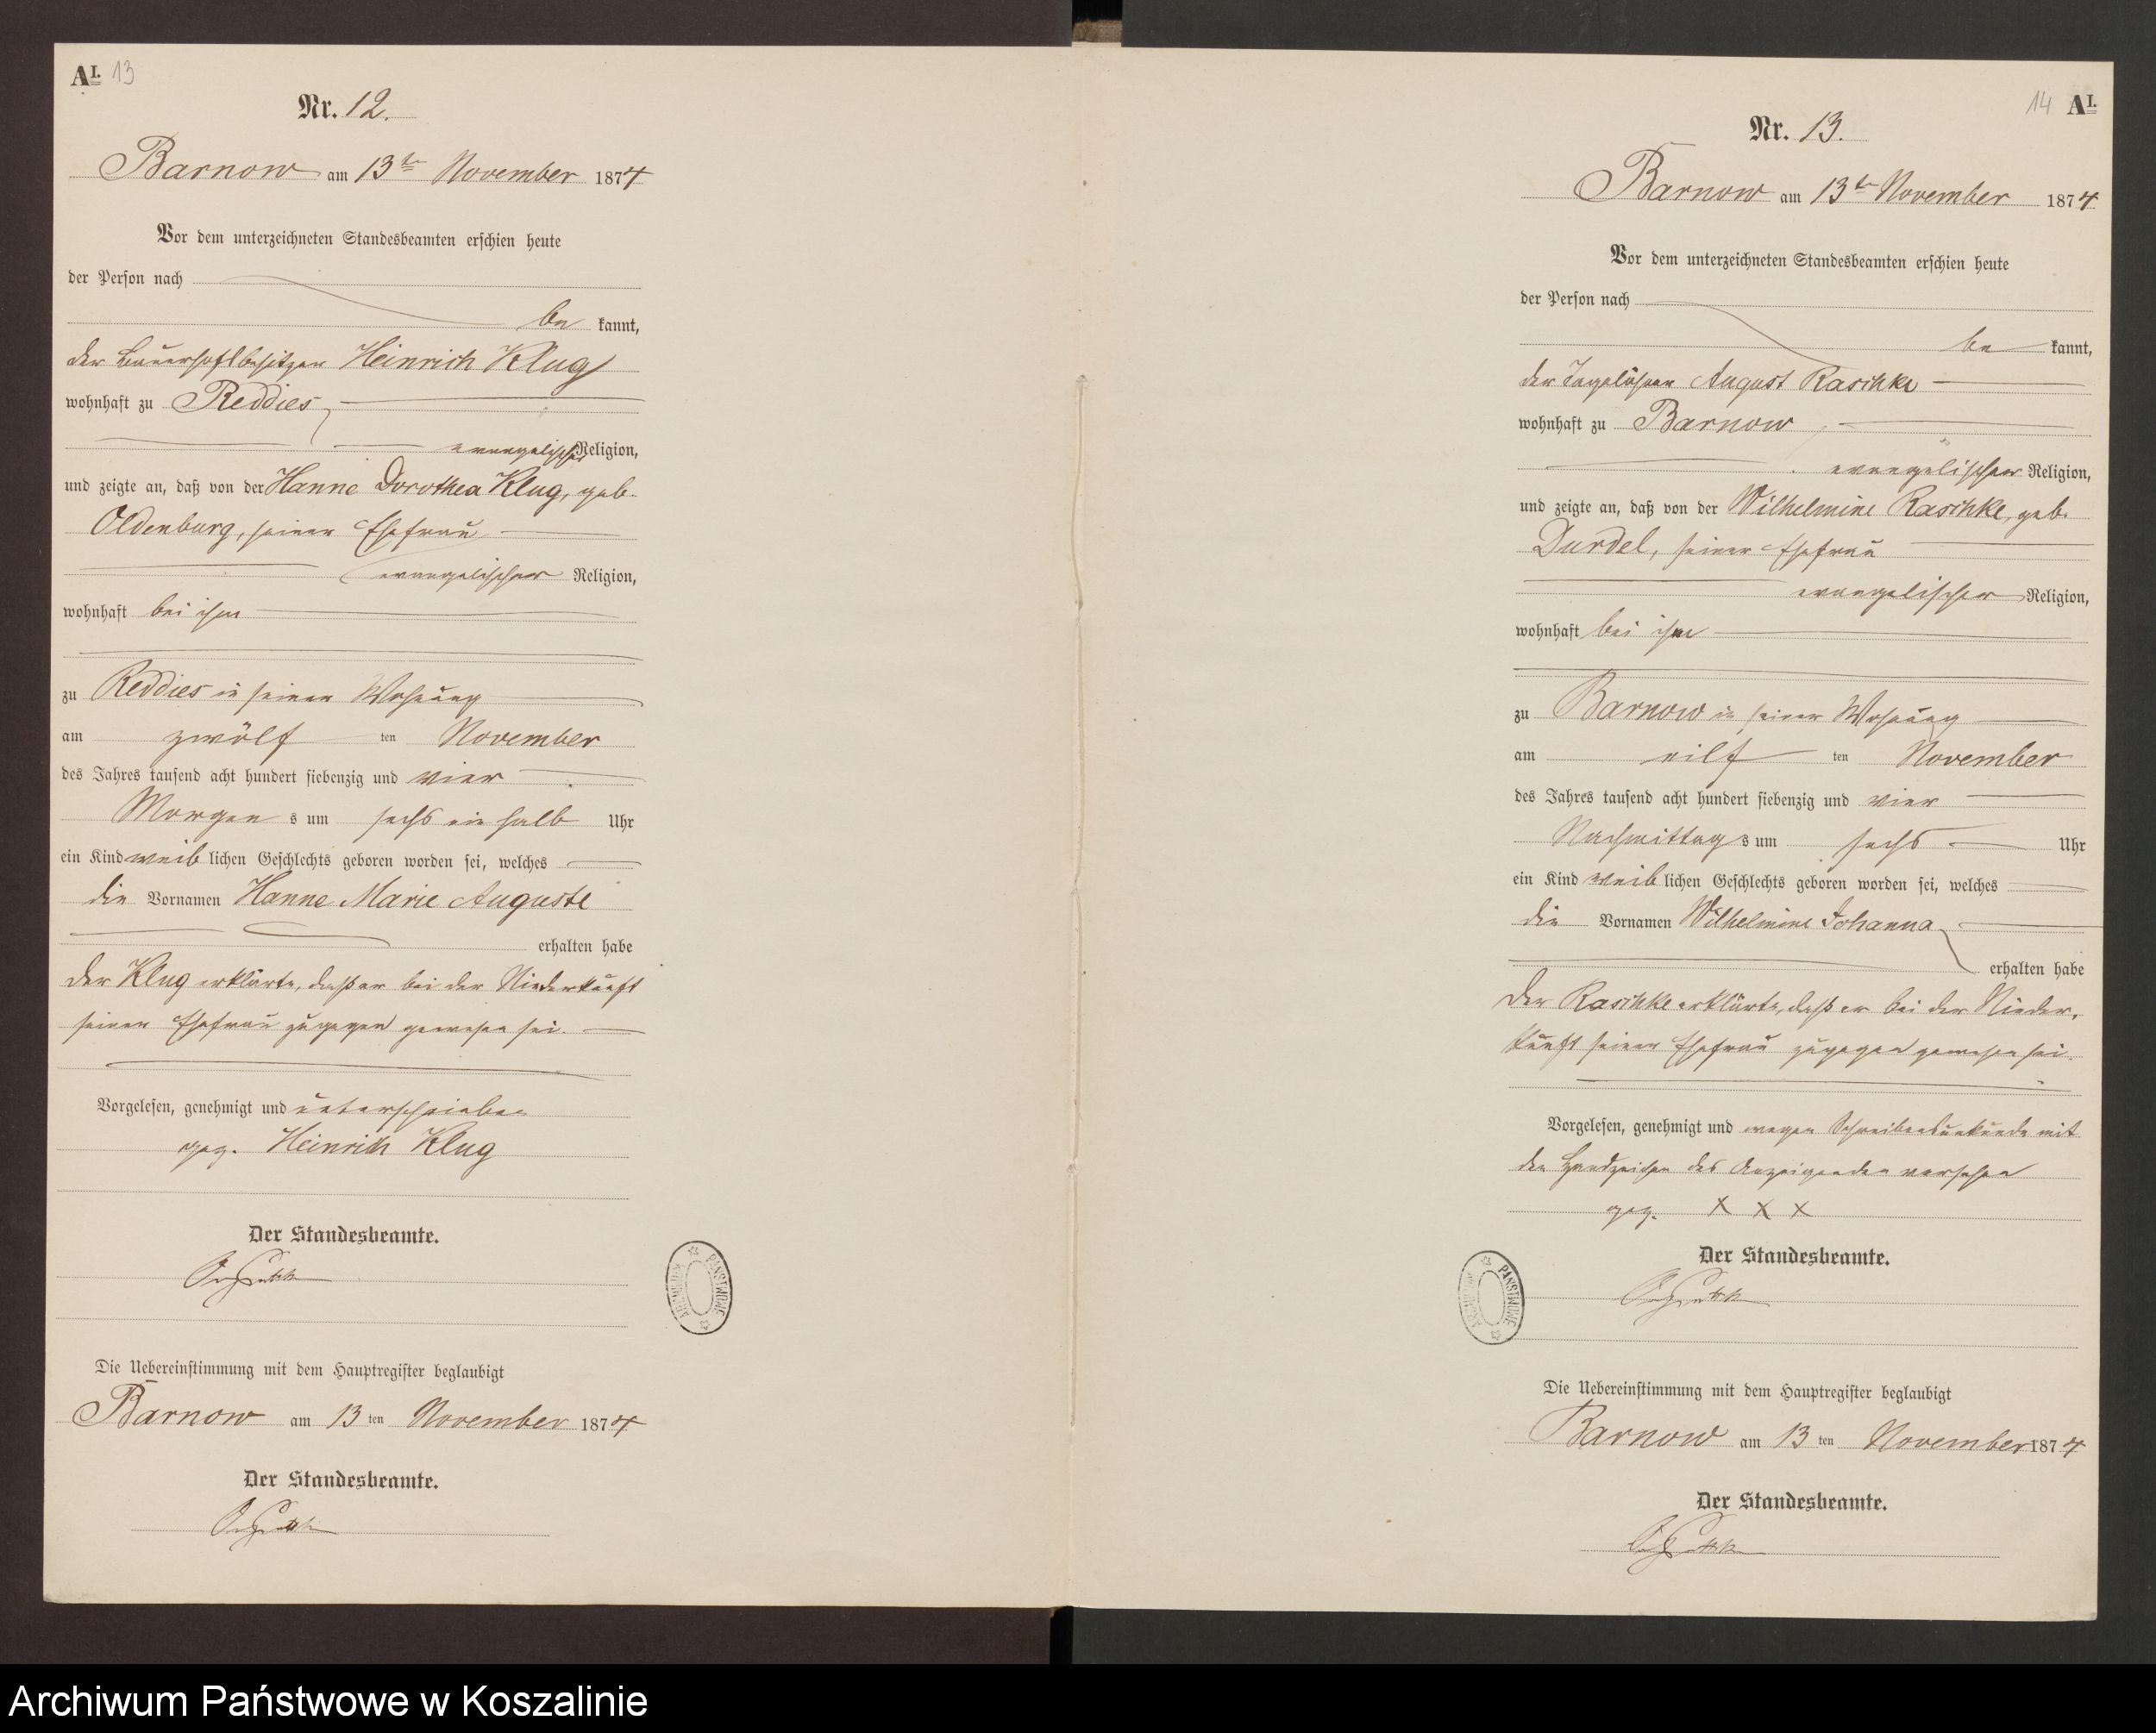 AI. 13
Nr. 12.
Barnow am 13ten November 1874
Vor dem unterzeichneten Standesbeamten erschien heute
der Person nach
be kannt,
der Bauerhofsbesitzer Heinrich Klug
wohnhaft zu Reddies,
evangelischer Religion,
und zeigte an, daß von der Hanne Dorothea Klug, geb.
Oldenburg, seiner Ehefrau
evangelischer Religion,
wohnhaft bei ihm
zu Reddies in seiner Wohnung
am zwölf ten November
des Jahres tausend acht hundert siebenzig und vier
Morgen s um sechs ein halb Uhr
ein Kind weib lichen Geschlechts geboren worden sei, welches
die Vornamen Hanne Marie Auguste
erhalten habe
Der Klug erklärte, daß er bei der Niederkunft
seiner Ehefrau zugegen gewesen sei.
Vorgelesen, genehmigt und unterschrieben
gez. Heinrich Klug
Der Standesbeamte.
Die Uebereinstimmung mit dem Hauptregister beglaubigt
Barnow am 13 ten November 1874
Der Standesbeamte.
ARCHIWUM PAŃSTWOWE
14 AI.
Nr. 13.
Barnow am 13ten November 1874
Vor dem unterzeichneten Standesbeamten erschien heute
der Person nach
be kannt,
der Tagelöhner August Raschke
wohnhaft zu Barnow
evangelischer Religion,
und zeigte an, daß von der Wilhelmine Raschke, geb.
Durdel, seiner Ehefrau
evangelischer Religion,
wohnhaft bei ihm
zu Barnow in seiner Wohnung
am eilf ten November
des Jahres tausend acht hundert siebenzig und vier
Nachmittag s um sechs Uhr
ein Kind weib lichen Geschlechts geboren worden sei, welches
die Vornamen Wilhelmine Johanna
erhalten habe
Der Raschke erklärte, daß er bei der Nieder-
kunft seiner Ehefrau zugegen gewesen sei.
Vorgelesen, genehmigt und wegen Schreibensunkunde mit
den Handzeichen des Anzeigenden versehen
gez. X X X
Der Standesbeamte.
Die Uebereinstimmung mit dem Hauptregister beglaubigt
Barnow am 13 ten November 1874
Der Standesbeamte.
ARCHIWUM PAŃSTWOWE
Archiwum Państwowe w Koszalinie